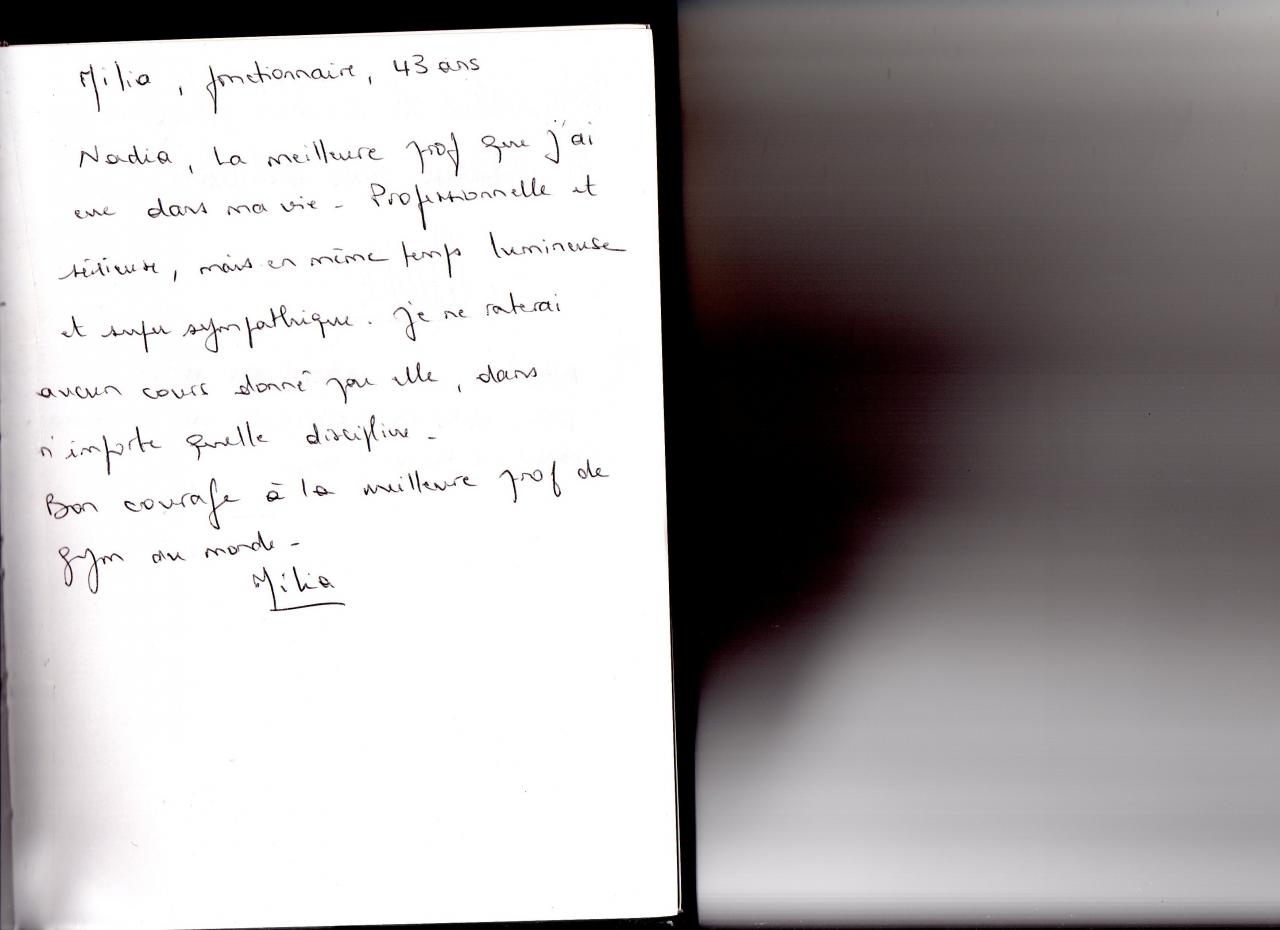 Milia, fonctionnaire, 43 ans
Nadia, La meilleure prof que j'ai
eue dans ma vie - Professionnelle et
sérieuse, mais en même temps lumineuse
et super sympathique. Je ne raterai
aucun cours donné par elle, dans
n'importe quelle discipline -
Bon courage à la meilleure prof de
gym au monde -
Milia